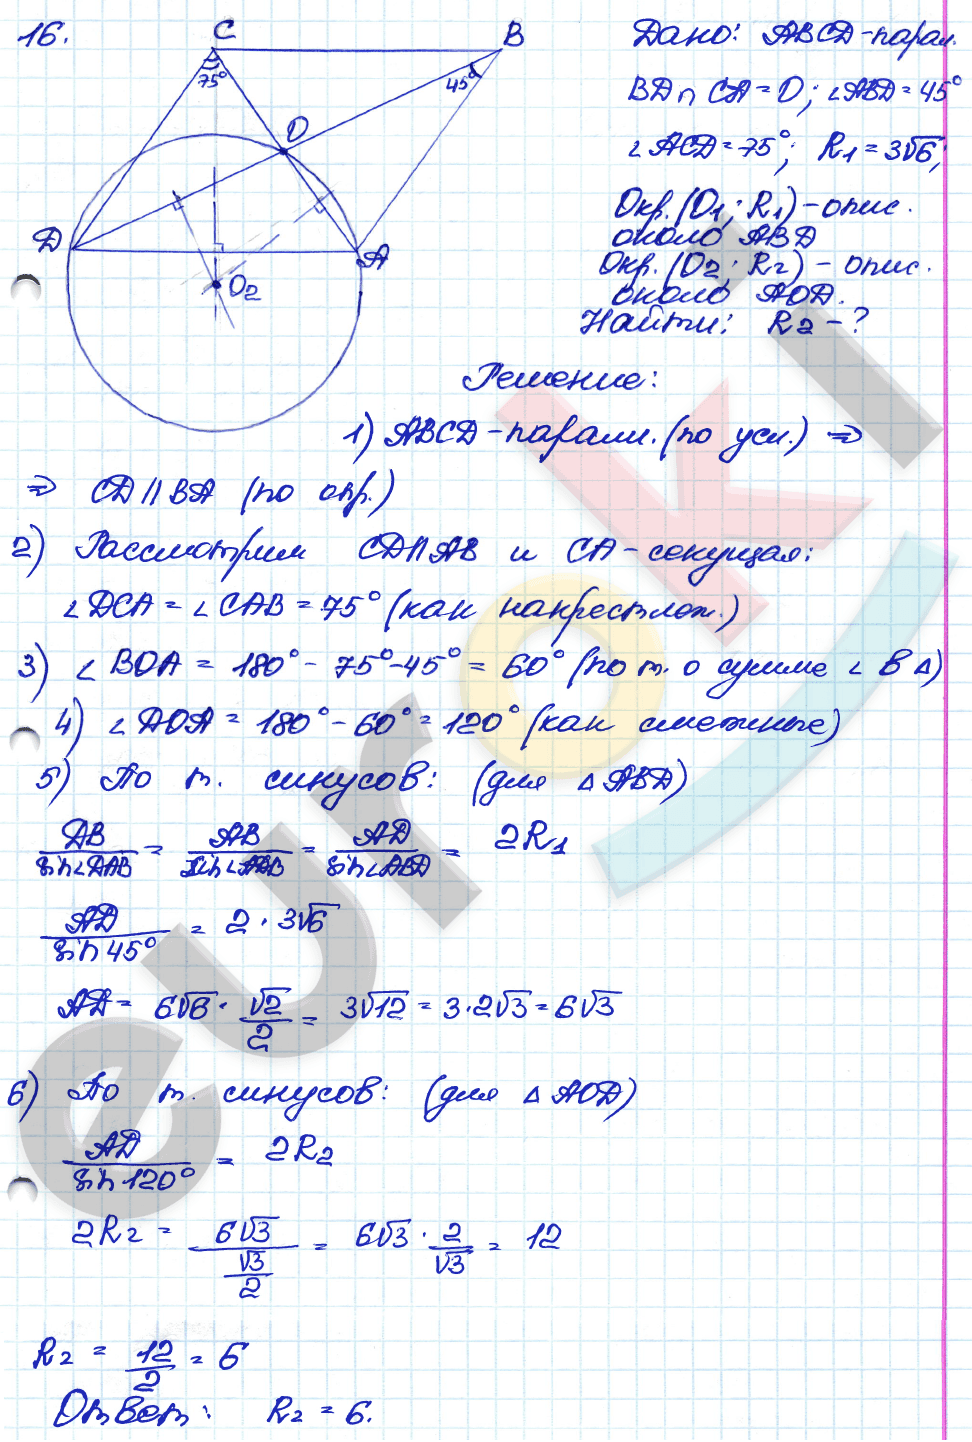 16.
C
B
75°
45°
O
D
A
O₂
Дано: ABCD-парал.
BD∩CA=O; ∠ABD=45°
∠ACD=75°; R₁=3√6;
Окр.(O₁; R₁)-опис.
около ABD
Окр.(O₂; R₂)-опис.
около AOD.
Найти: R₂-?
Решение:
1) ABCD-паралл.(по усл.) ⇒
⇒ CD||BA (по опр.)
2) Рассмотрим CD||AB и CA-секущая:
∠DCA=∠CAB=75° (как накрестлеж.)
3) ∠BOA=180°-75°-45°=60° (по т. о сумме ∠ в △)
4) ∠AOD=180°-60°=120° (как смежные)
5) По т. синусов: (для △ABD)
DB/sin∠DAB = AB/sin∠ADB = AD/sin∠ABD = 2R₁
AD/sin45° = 2·3√6
AD= 6√6·√2/2 = 3√12=3·2√3=6√3
6) По т. синусов: (для △AOD)
AD/sin120° = 2R₂
2R₂ = 6√3/(√3/2) = 6√3·2/√3 = 12
R₂ = 12/2 = 6
Ответ: R₂=6.
euroki